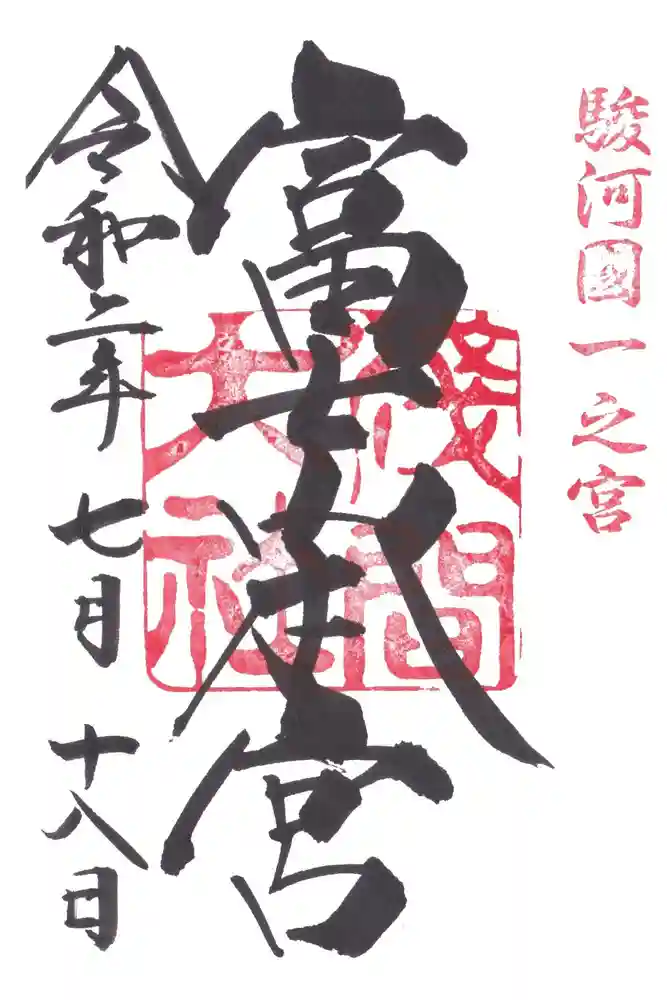 駿河國一之宮
富士本宮
淺間
大社
令和二年 七月 十八日